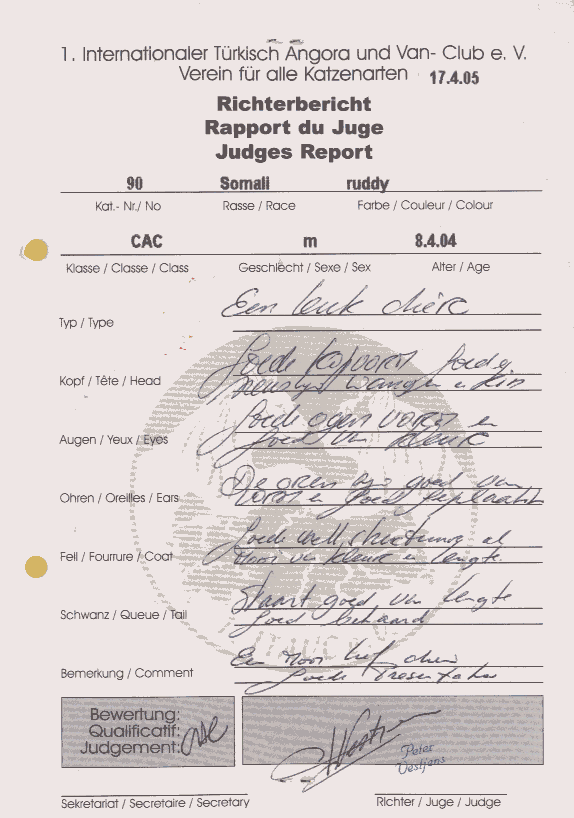 1. Internationaler Türkisch Angora und Van- Club e. V.
Verein für alle Katzenarten 17.4.05
Richterbericht
Rapport du Juge
Judges Report
90 Somali ruddy
Kat.- Nr./ No Rasse / Race Farbe / Couleur / Colour
CAC m 8.4.04
Klasse / Classe / Class Geschlecht / Sexe / Sex Alter / Age
Een leuk
Typ / Type
Goede Goede
Kopf / Tête / Head
Goede ogen vorm en
Augen / Yeux / Eyes goed van kleur
De oren zijn goed van
Ohren / Oreilles / Ears vorm en goed geplaatst
Goede
Fell / Fourrure / Coat mooi van kleur en lengte.
Staart goed van lengte
Schwanz / Queue / Tail Goed behaard
Een mooi lief dier
Bemerkung / Comment Goede
Bewertung:
Qualificatif:
Judgement:
Peter
Oestjens
Sekretariat / Secretaire / Secretary Richter / Juge / Judge